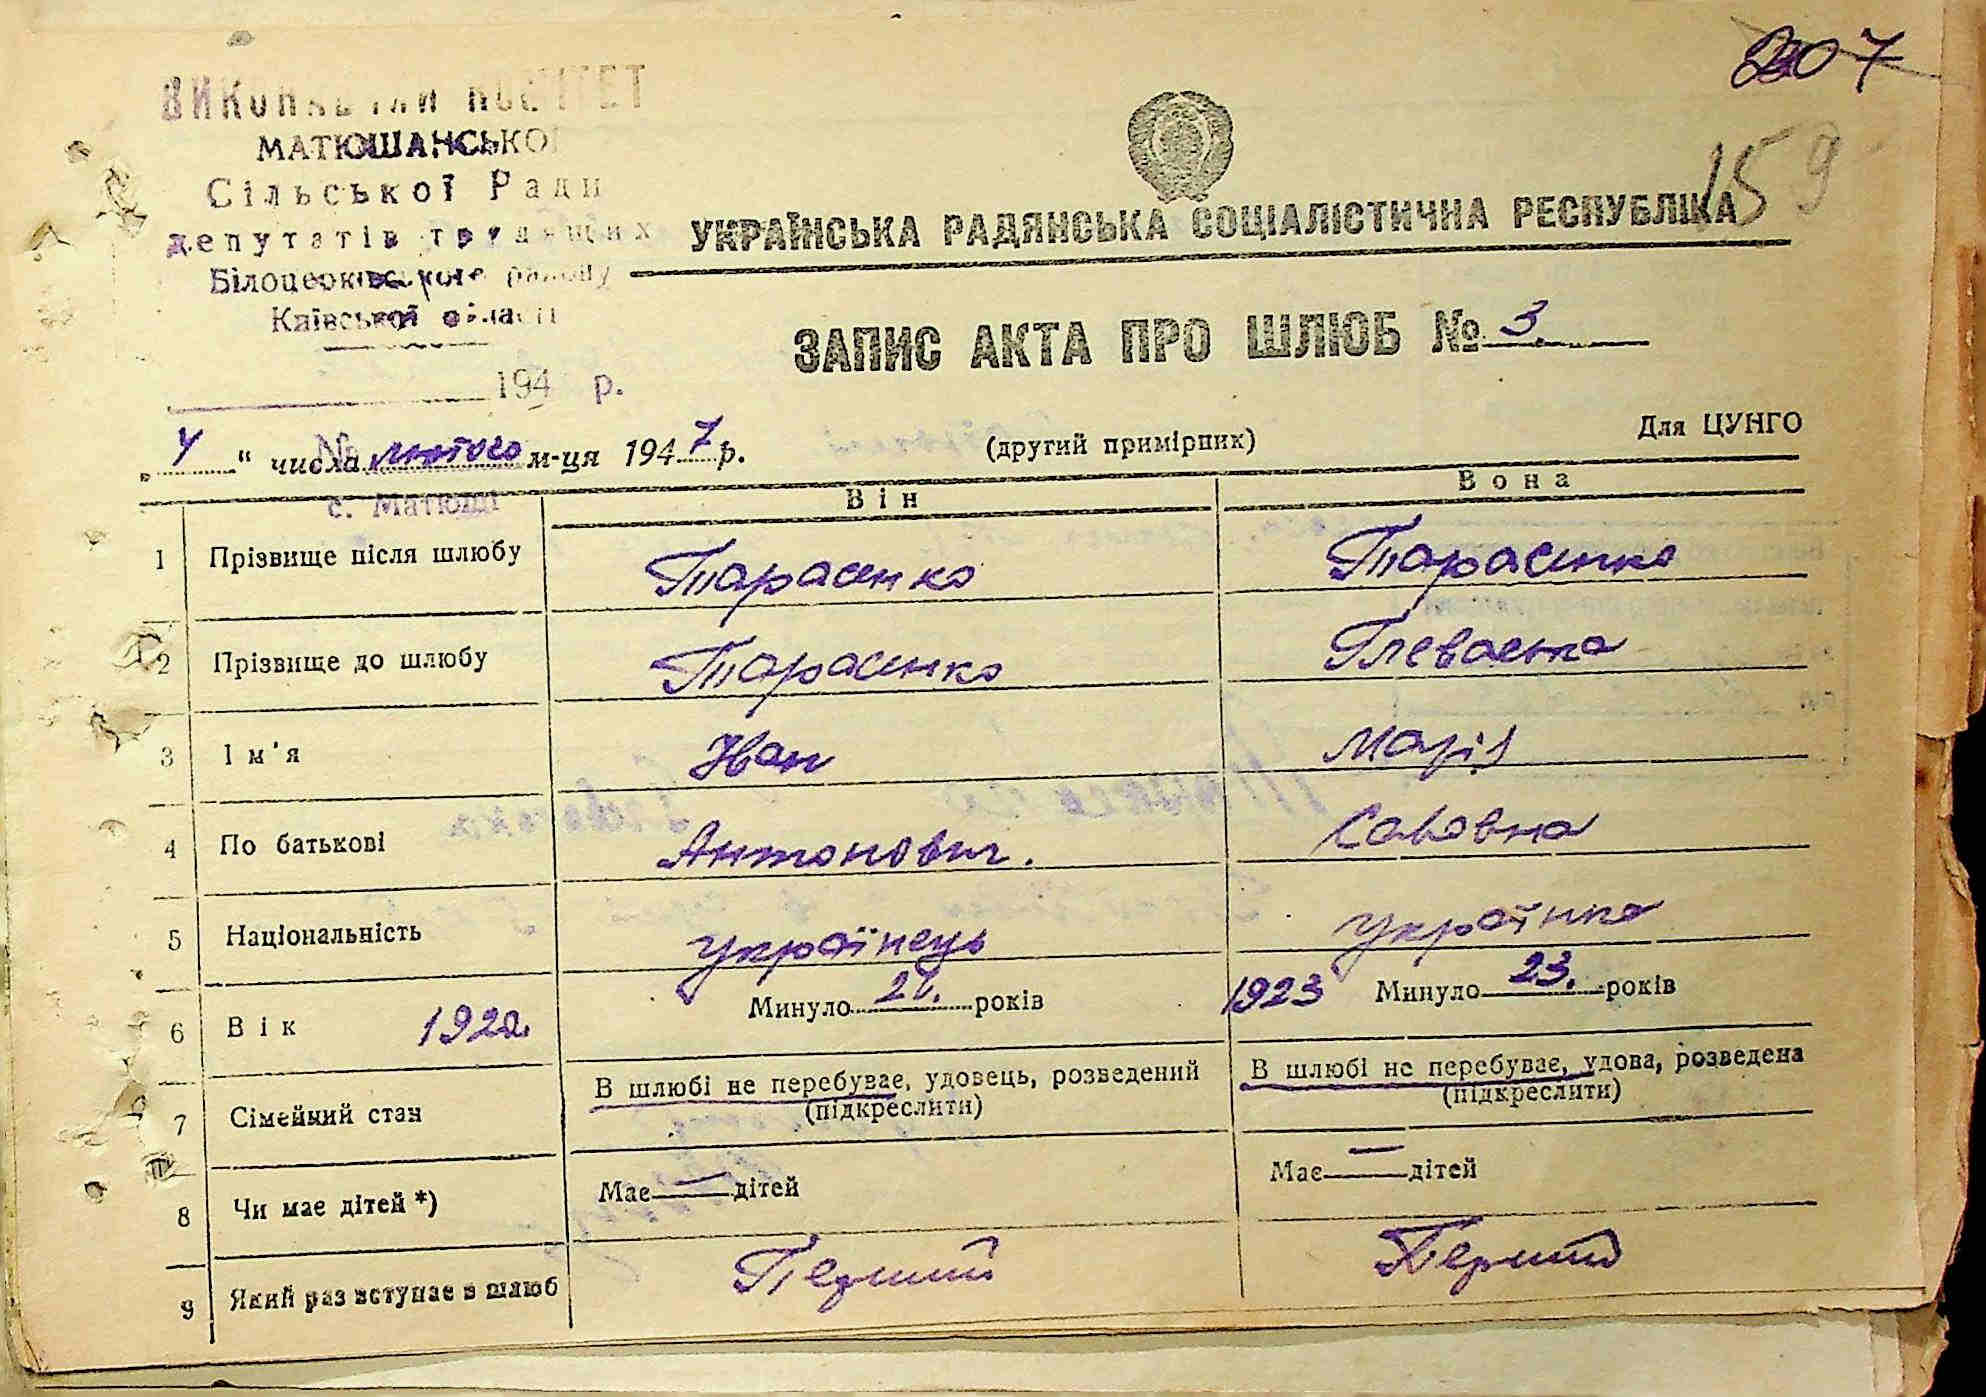 207
159
ВИКОНАВЧИЙ КОМІТЕТ
МАТЮШАНСЬКОЇ
Сільської Ради
депутатів трудящих
Білоцерківського району
Київської області
194 р.
№
с. Матюші
УКРАЇНСЬКА РАДЯНСЬКА СОЦІАЛІСТИЧНА РЕСПУБЛІКА
ЗАПИС АКТА ПРО ШЛЮБ № 3.
„ 4 “ числа лютого м-ця 1947 р.
(другий примірник)
Для ЦУНГО
Він Вона
1 Прізвище після шлюбу Тарасенко Тарасенко
2 Прізвище до шлюбу Тарасенко Глеваська
3 Ім'я Іван Марія
4 По батькові Антонович. Савовна
5 Національність Українець Українка
6 Вік 1922 Минуло 24. років 1923 Минуло 23. років
7 Сімейний стан В шлюбі не перебуває, удовець, розведений В шлюбі не перебуває, удова, розведена
(підкреслити) (підкреслити)
8 Чи має дітей *) Має — дітей Має — дітей
9 Який раз вступає в шлюб Перший Перший